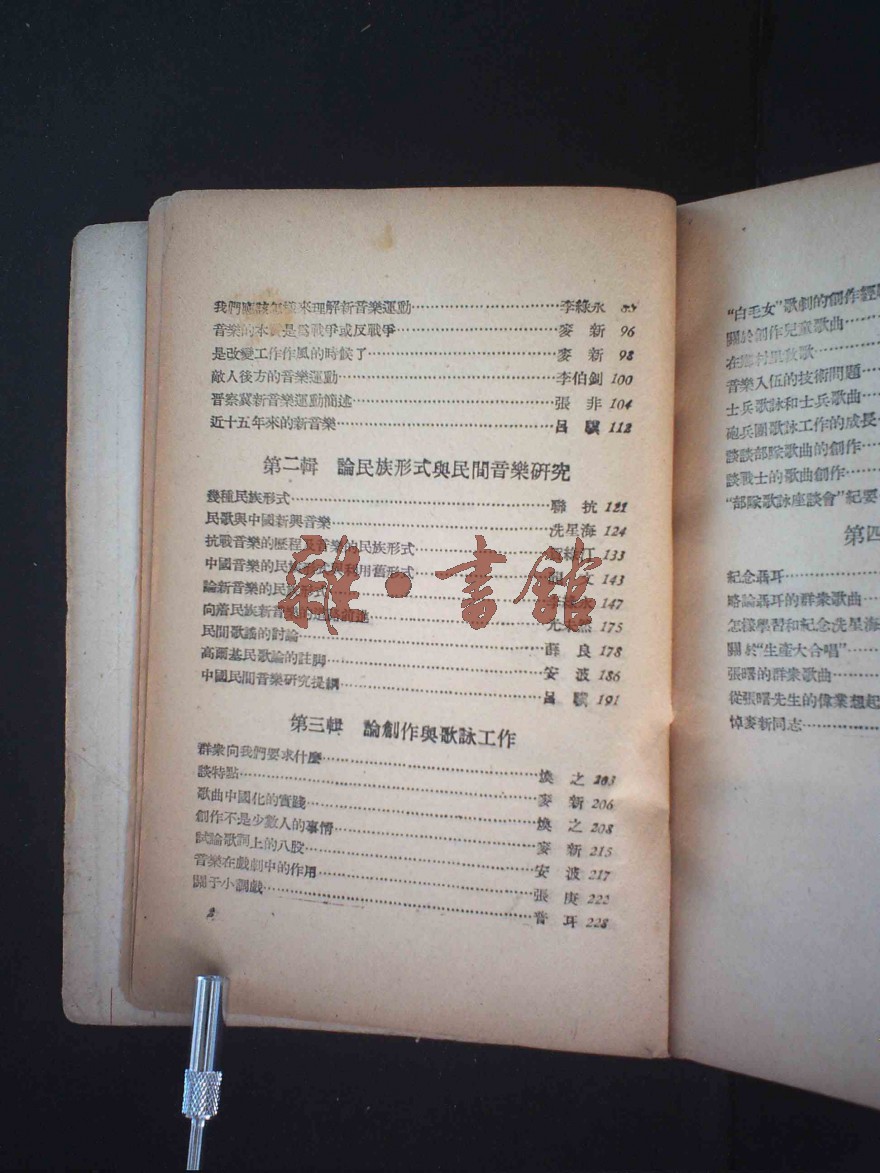 我們應該怎樣來理解新音樂運動 李綠永
音樂的本質是爲戰爭或反戰爭 麥新 96
是改變工作作風的時候了 麥新 98
敵人後方的音樂運動 李伯釗 100
晋察冀新音樂運動簡述 張非 104
近十五年來的新音樂 呂驥 112
第二輯 論民族形式與民間音樂研究
幾種民族形式 聯抗 121
民歌與中國新興音樂 洗星海 124
抗戰音樂的歷程及音樂的民族形式 133
中國音樂的民族形式與利用舊形式 143
論新音樂的民族形式 李綠永 147
向着民族新音樂的道路前進 光未然 175
民間歌謠的討論 薛良 178
高爾基民歌論的註脚 安波 186
中國民間音樂研究提綱 呂驥 191
雜·書館
第三輯 論創作與歌詠工作
群衆向我們要求什麽 煥之 203
談特點 麥新 206
歌曲中國化的實踐 煥之 208
創作不是少數人的事情 麥新 215
試論歌詞上的八股 安波 217
音樂在戲劇中的作用 張庚 222
關于小調戲 普耳 228
2
“白毛女”歌劇的創作經
關於創作兒童歌曲
在鄉村里教歌
音樂入伍的技術問題
士兵歌詠和士兵歌曲
砲兵團歌詠工作的成長
談談部隊歌曲的創作
談戰士的歌曲創作
“部隊歌詠座談會”紀要
第四
紀念聶耳
略論聶耳的群衆歌曲
怎樣學習和紀念洗星海
關於“生產大合唱”
張曙的群衆歌曲
從張曙先生的偉業想起
悼麥新同志